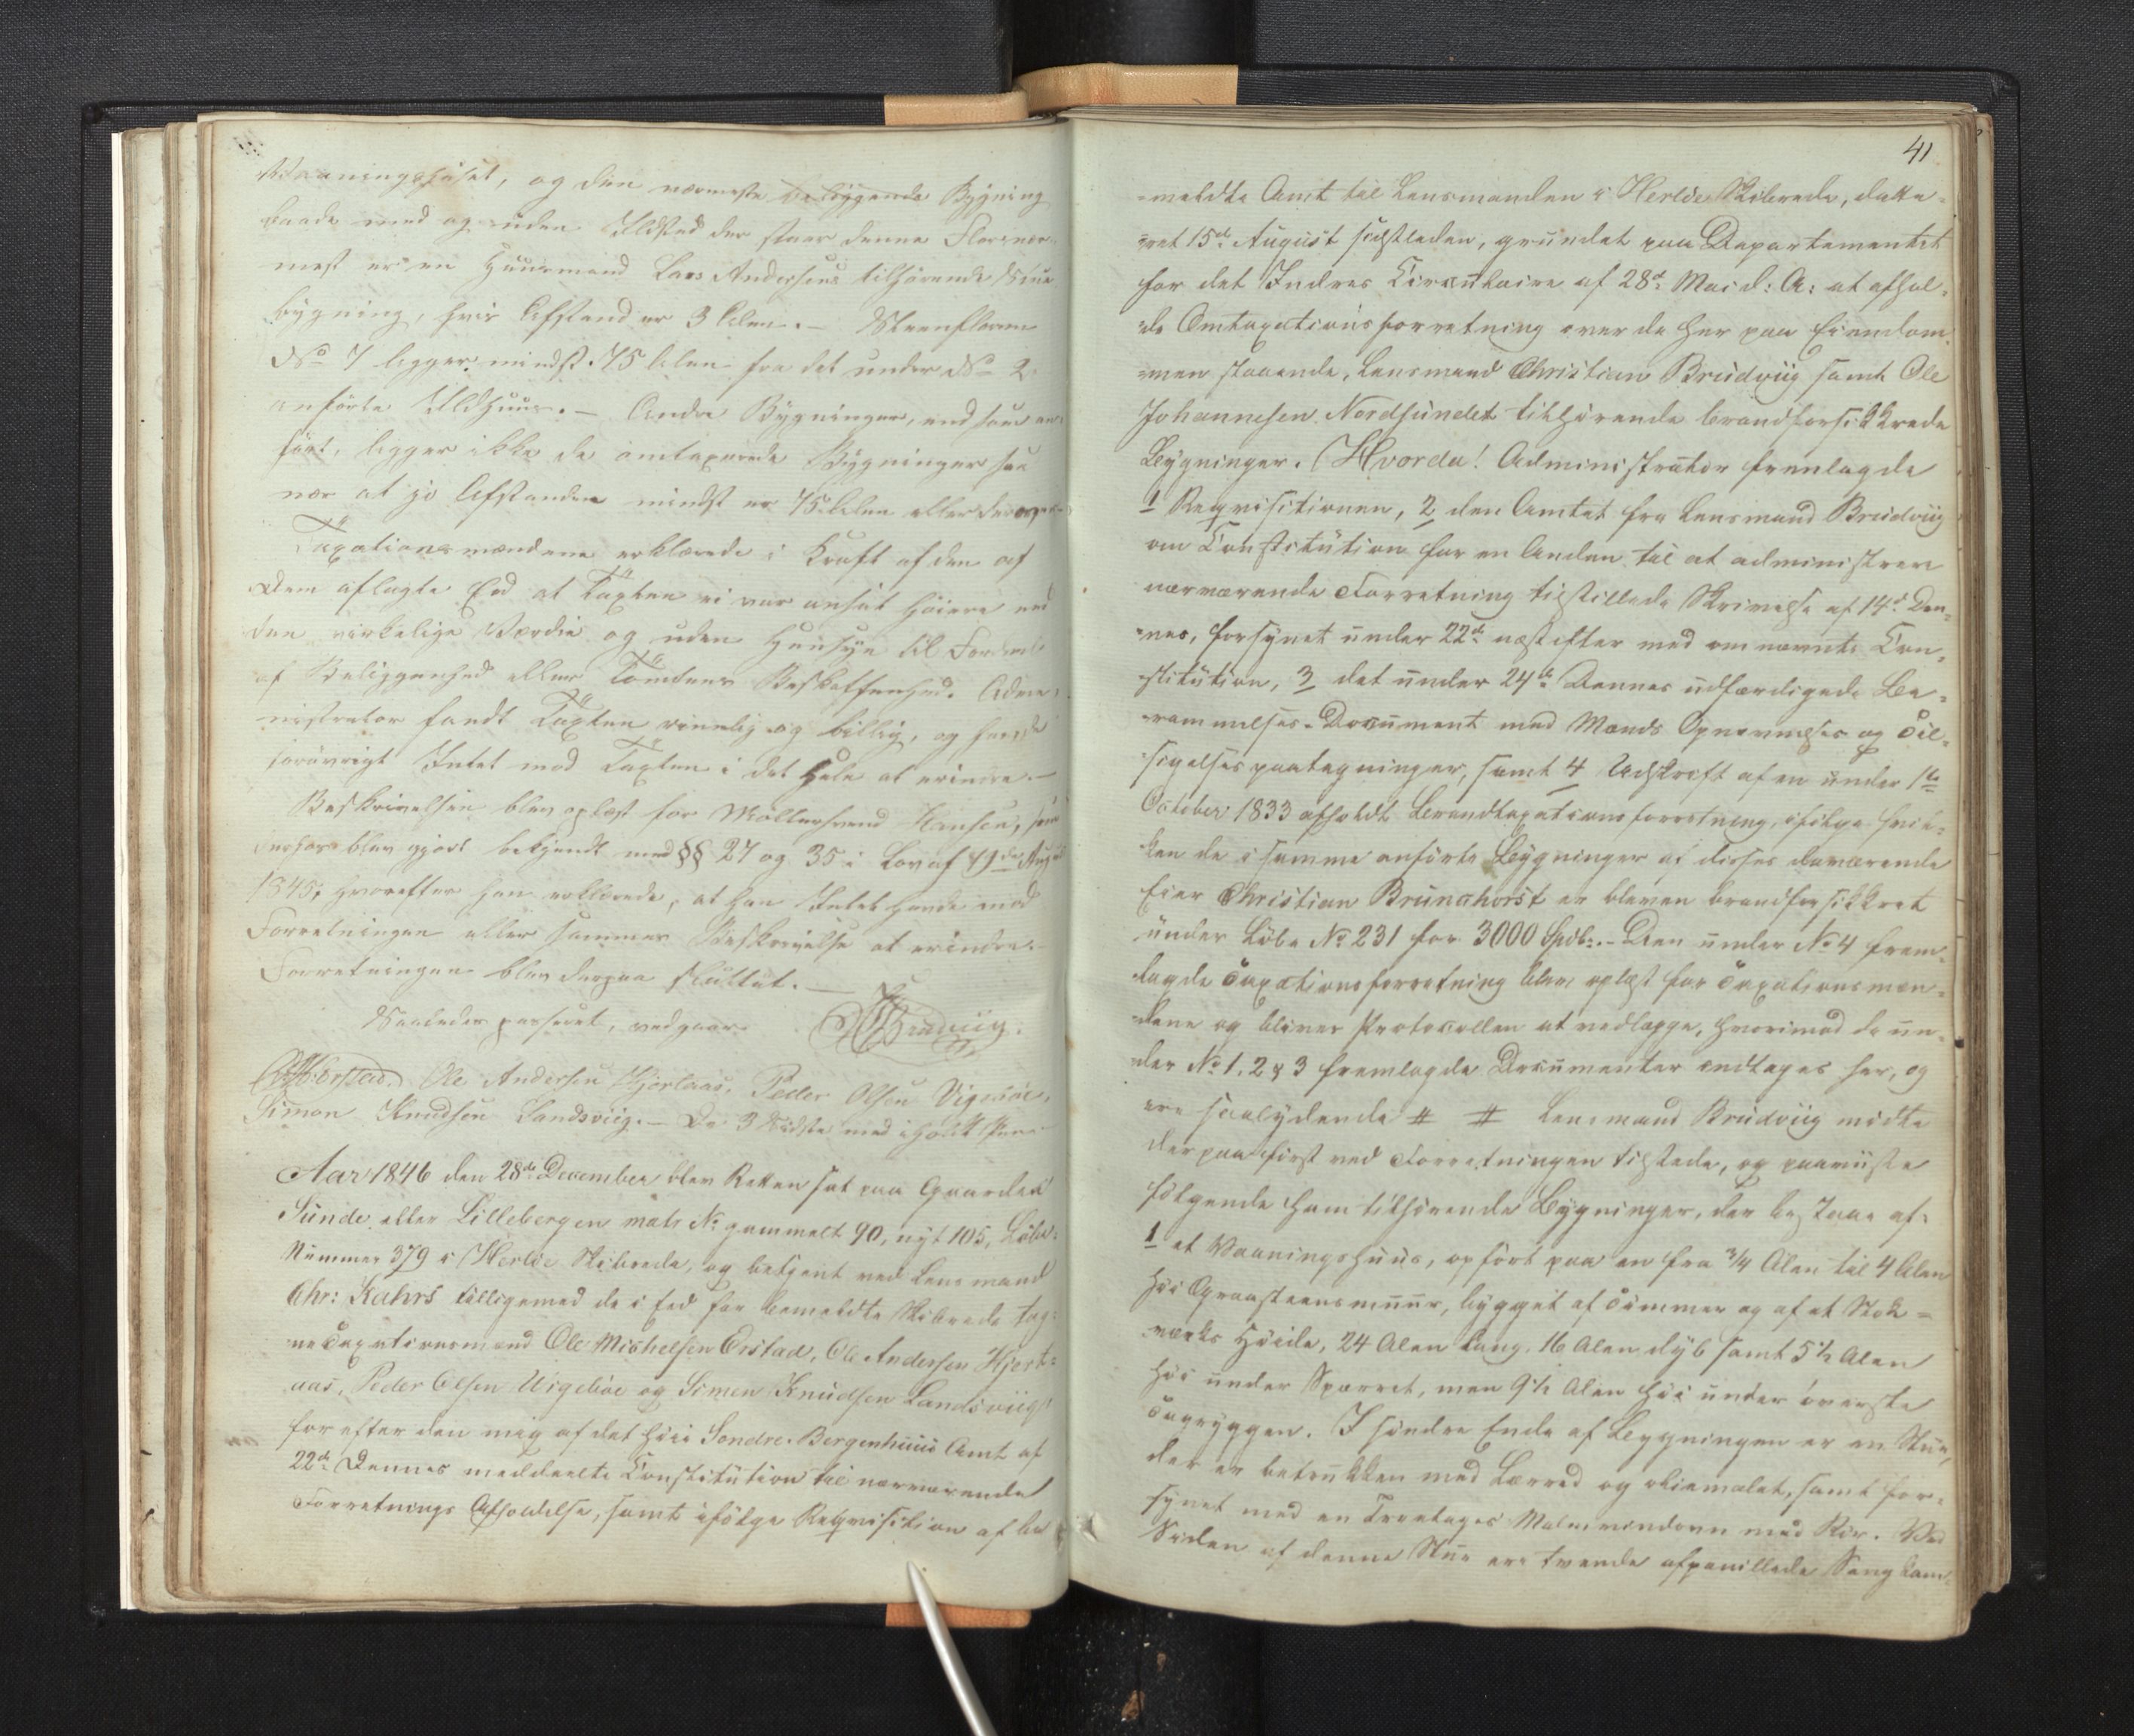 Vaaningshuset, og den nærmeste beliggende Bygning
baade med og uden Ildsted der staar denne Flor nær-
mest er en Huusmand Lars Andersens tilhørende Stue
bygning, hvis Afstand er 3 Alen. –
No 7 ligger mindst 75 Alen fra det under No 2
anførte Ildhuus. – Andre Bygninger, end som an-
ført, ligger ikke de omtaxerede Bygninger saa
nær at jo Afstanden mindst er 75 Alen eller derover
Taxationsmændene erklærede i Kraft af den af
dem aflagte Eed at Taxten ei var ansat høiere end
den virkelige Værdie og uden Hensyn til Fordeel
af Beliggenhed eller Tomtens Beskaffenhed. Admi-
nistrator fandt Taxten rimelig og billig, og havde
forøvrigt Intet mod Taxten i det Hele at erindre. –
Beskrivelsen blev oplæst for Møllersvend Hansen, som
derhos blev gjort bekjendt med §§ 27 og 35 i Lov af 19de August
1845, hvorefter han erklærede, at han Intet havde mod
Forretningen eller sammes Beskrivelse at erindre. –
Forretningen blev derpaa sluttet. –
Saaledes passeret, vedgaar. Brudviig.
Ole Andersen Hjertaas, Peder Olsen Vigebøe,
Simon Knudsen Landsviig. – De 3 Sidste med iholdt Pen
Aar 1846 den 28de December blev Retten sat paa Gaarden
Sunde eller Lillebergen matr No gammelt 90, nyt 105, Løbe-
Nummer 379 i Herløe Skibrede, og betjent ved Lensmand
Chr: Kahrs tilligemed de i Eed for bemeldte Skibrede tag-
ne Taxationsmænd Ole Michelsen Erstad, Ole Andersen Hjert-
aas, Peder Olsen Vigebøe og Simen Knudsen Landsviig
for efter den mig af det høie Søndre Bergenhuus Amt af
22de Dennes meddeelte Constitution til nærværende
Forretnings Afholdelse, samt ifølge Reqvisition af be
41
-meldte Amt til Lensmanden i Herløe Skibrede, datte-
ret 15de August sidstleden, grundet paa Departementet
for det Indres Circulaire af 28de Mai d: A: at afhol-
de Omtaxationsforretning over de her paa Eiendom-
men staaende, Lensmand Christian Brudviig samt Ole
Johannesen Nordsundet tilhørende brandforsikkrede
Bygninger. (Hvorda! Administrator fremlagde
1 Reqvisitionen, 2 den Amtet fra Lensmand Brudviig
om Constitution for en Anden til at administrere
nærværende Forretning tilstillede Skrivelse af 14de Den-
nes, forsynet under 22de næstefter med omnævnte Con-
stitution, 3 det under 24de Dennes udfærdigede Be-
rammelses-Document med Mænds Opnævnelses og Til-
sigelsespaategninger, samt 4 Udskrift af en under 1ste
October 1833 afholdt Brandtaxationsforretning, ifølge hvil-
ken de i samme anførte Bygninger af disses daværende
Eier Christian Brunchorst er bleven brandforsikkret
under Løbe No 231 for 3000 Spd: – Den under No 4 frem-
lagde Taxationsforretning blev oplæst for Taxationsmæn-
dene og bliver Protocollen at vedlægge, hvorimod de un-
der No 1, 2 & 3 fremlagde Documenter indtages her, og
ere saalydende # # Lensmand Brudviig mødte
derpaa først ved Forretningen tilstede, og paaviiste
følgende ham tilhørende Bygninger, der bestaae af:
1 et Vaaningshuus, opført paa en fra 3/4 Alen til 4 Alen
høi Graasteensmuur, bygget af Tømmer og af et Stok-
værks Høide, 24 Alen lang, 16 Alen dyb samt 5 1/2 Alen
høi under Sparret, men 9 1/2 Alen høi under øverste
Tagryggen. I søndre Ende af Bygningen er en Stue,
der er betrukken med Lærred og oliemalet, samt for-
synet med en Treetages Malmvindovn med Rør. Ved
Siden af denne Stue ere tvende afpanillede Sengekam-